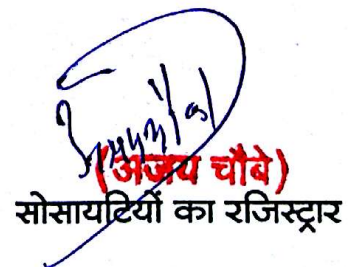 (अजय चौबे)
सोसायटियों का रजिस्ट्रार